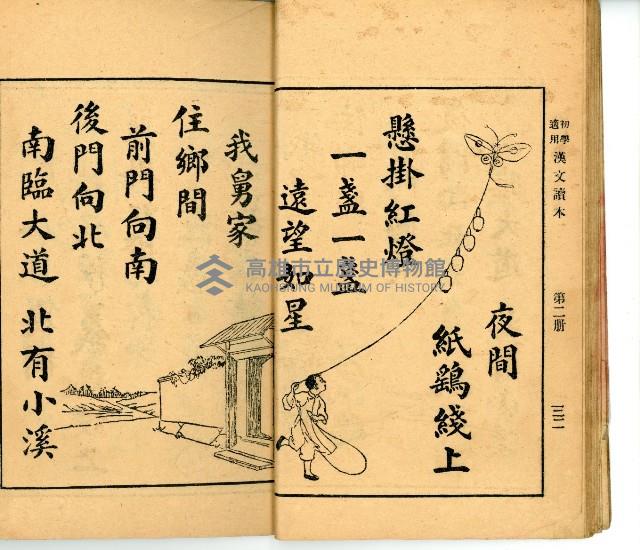 初學適用 漢文讀本 第二册 三二
夜間
紙鷂綫上
懸掛紅燈
一盞一盞
遠望如星
我舅家
住鄉間
前門向南
後門向北
南臨大道 北有小溪
高雄市立歷史博物館
KAOHSIUNG MUSEUM OF HISTORY